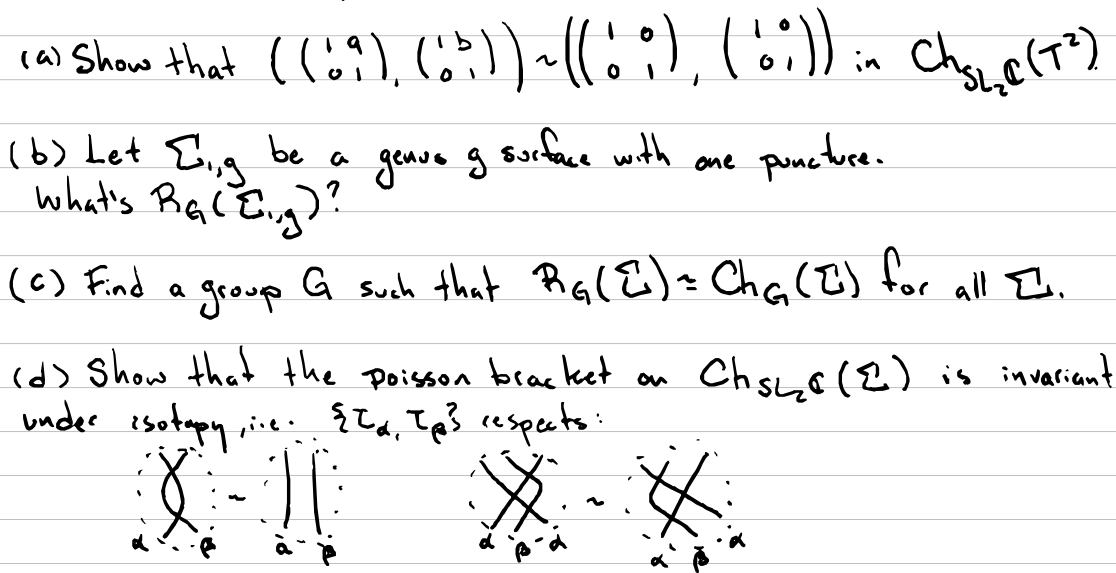 (a) Show that ( (1 a 0 1), (1 b 0 1) ) ~ ( (1 0 0 1), (1 0 0 1) ) in Ch_{SL₂ℂ}(T²).
(b) Let Σ_{1,g} be a genus g surface with one puncture.
What's R_G(Σ_{1,g})?
(c) Find a group G such that R_G(Σ) ≃ Ch_G(Σ) for all Σ.
(d) Show that the poisson bracket on Ch_{SL₂ℂ}(Σ) is invariant
under isotopy, i.e. {τ_α, τ_β} respects:
~ ~
α β a β α β α α β α